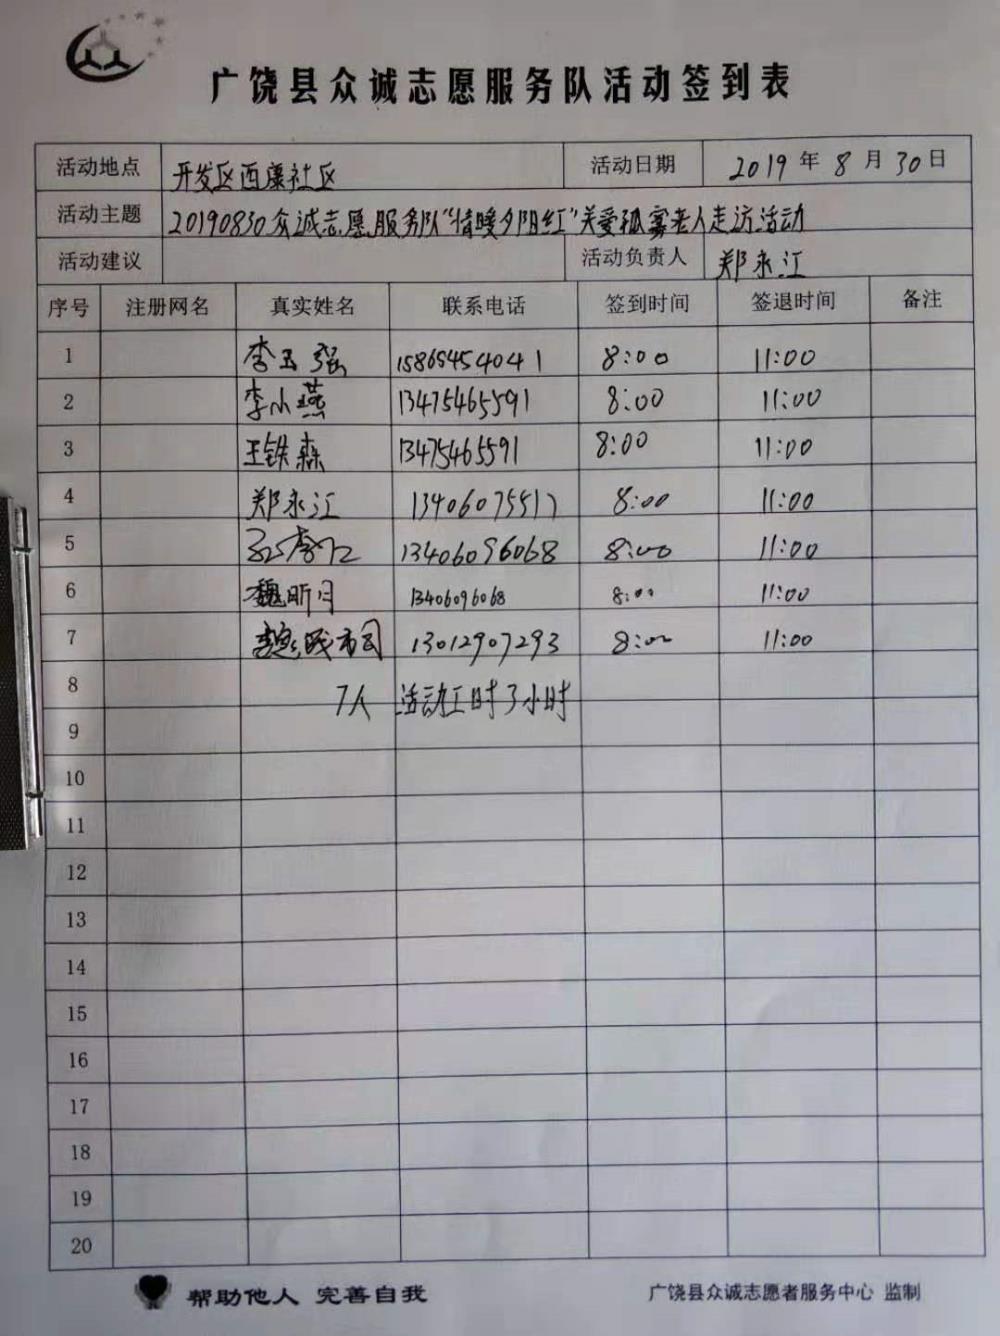 广饶县众诚志愿服务队活动签到表
活动地点 开发区西康社区 活动日期 2019年8月30日
活动主题 20190830众诚志愿服务队“情暖夕阳红”关爱孤寡老人走访活动
活动建议 活动负责人 郑永江
序号 注册网名 真实姓名 联系电话 签到时间 签退时间 备注
1 李玉强 15865454041 8:00 11:00
2 李小燕 13475465591 8:00 11:00
3 王铁森 13475465591 8:00 11:00
4 郑永江 13406075517 8:00 11:00
5 13406096068 8:00 11:00
6 魏昕月 13406096068 8:00 11:00
7 13012907293 8:00 11:00
8 7人 活动工时3小时
9
10
11
12
13
14
15
16
17
18
19
20
帮助他人 完善自我 广饶县众诚志愿者服务中心 监制